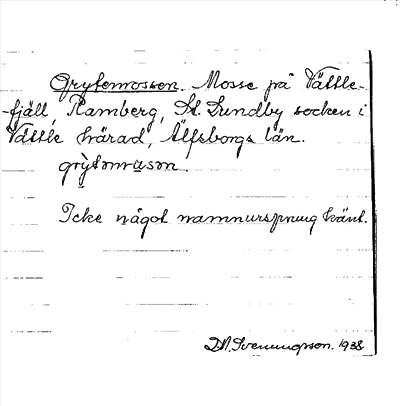 Grytemossen. Mosse på Vättle-
-fjäll, Ramberg, St. Lundby socken i
Vättle härad, Älfsborgs län.
grỳtəmåsən.
Icke något namnursprung känt.
D.A. Svenungson. 1938